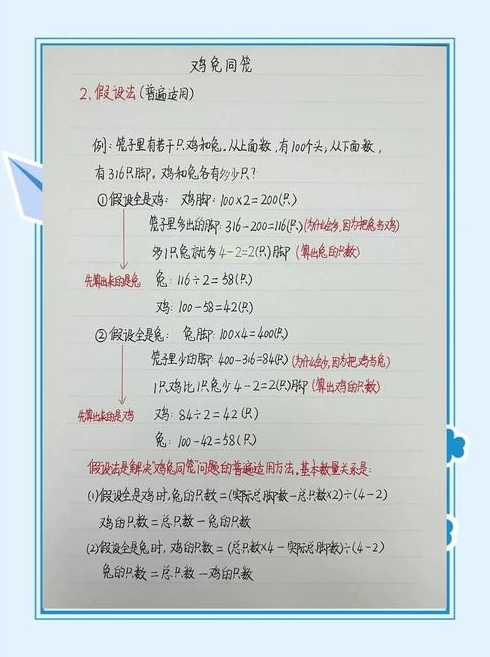 鸡兔同笼
2.假设法(普遍适用)
例:笼子里有若干只鸡和兔。从上面数,有100个头,从下面数,
有316只脚。鸡和兔各有多少只?
①假设全是鸡: 鸡脚:100×2=200(只)
笼子里多出的脚:316-200=116(只)(为什么多,因为把兔当鸡)
多1只兔就多4-2=2(只)脚 (算出兔的只数)
先算出来的是兔 兔:116÷2=58(只)
鸡:100-58=42(只)
②假设全是兔: 兔脚:100×4=400(只)
笼子里少的脚:400-316=84(只)(为什么少,因为把鸡当兔)
1只鸡比1只兔少4-2=2(只)脚 (算出鸡的只数)
先算出来的是鸡 鸡:84÷2=42(只)
兔:100-42=58(只)
假设法是解决“鸡兔同笼”问题的普遍适用方法,基本数量关系是:
(1)假设全是鸡时,兔的只数=(实际总脚数-总只数×2)÷(4-2)
鸡的只数=总只数-兔的只数
(2)假设全是兔时,鸡的只数=(总只数×4-实际总脚数)÷(4-2)
兔的只数=总只数-鸡的只数